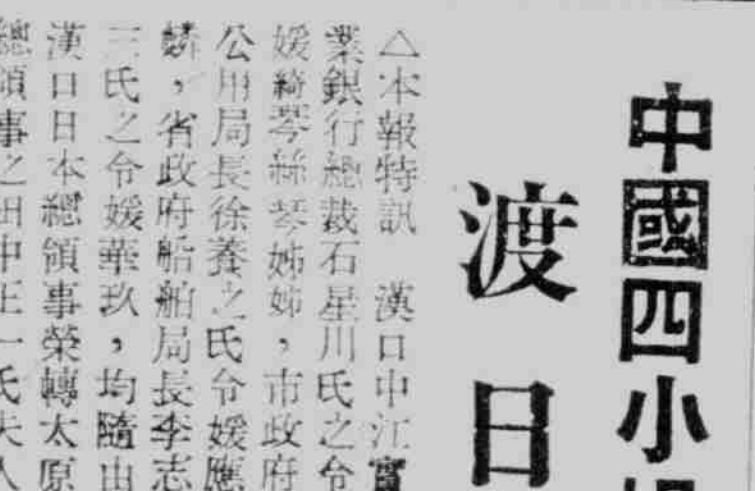 中國四小
渡日
△本報特訊 漢口中江實
業銀行總裁石星川氏之令
媛綺琴絲琴姊姊，市政府
公用局長徐養之氏令媛應
麟，省政府船舶局長李志
三氏之令媛華玖，均隨由
漢口日本總領事榮轉太原
總領事之田中正一氏夫人